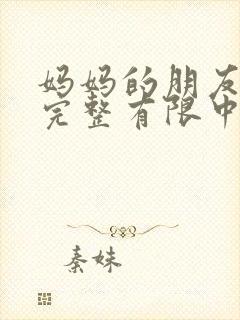 妈妈的朋友
完整有限中
秦妹